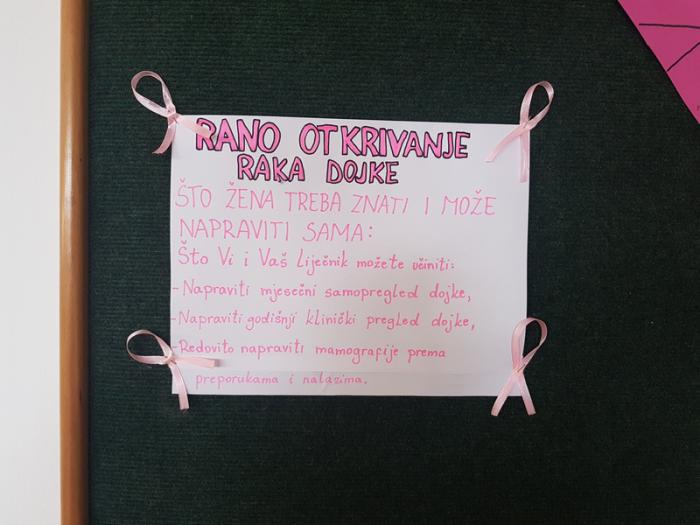 RANO OTKRIVANJE
RAKA DOJKE
ŠTO ŽENA TREBA ZNATI I MOŽE
NAPRAVITI SAMA:
Što Vi i Vaš Liječnik možete učiniti:
-Napraviti mjesečni samopregled dojke,
-Napraviti godišnji klinički pregled dojke,
-Redovito napraviti mamografije prema
preporukama i nalazima.